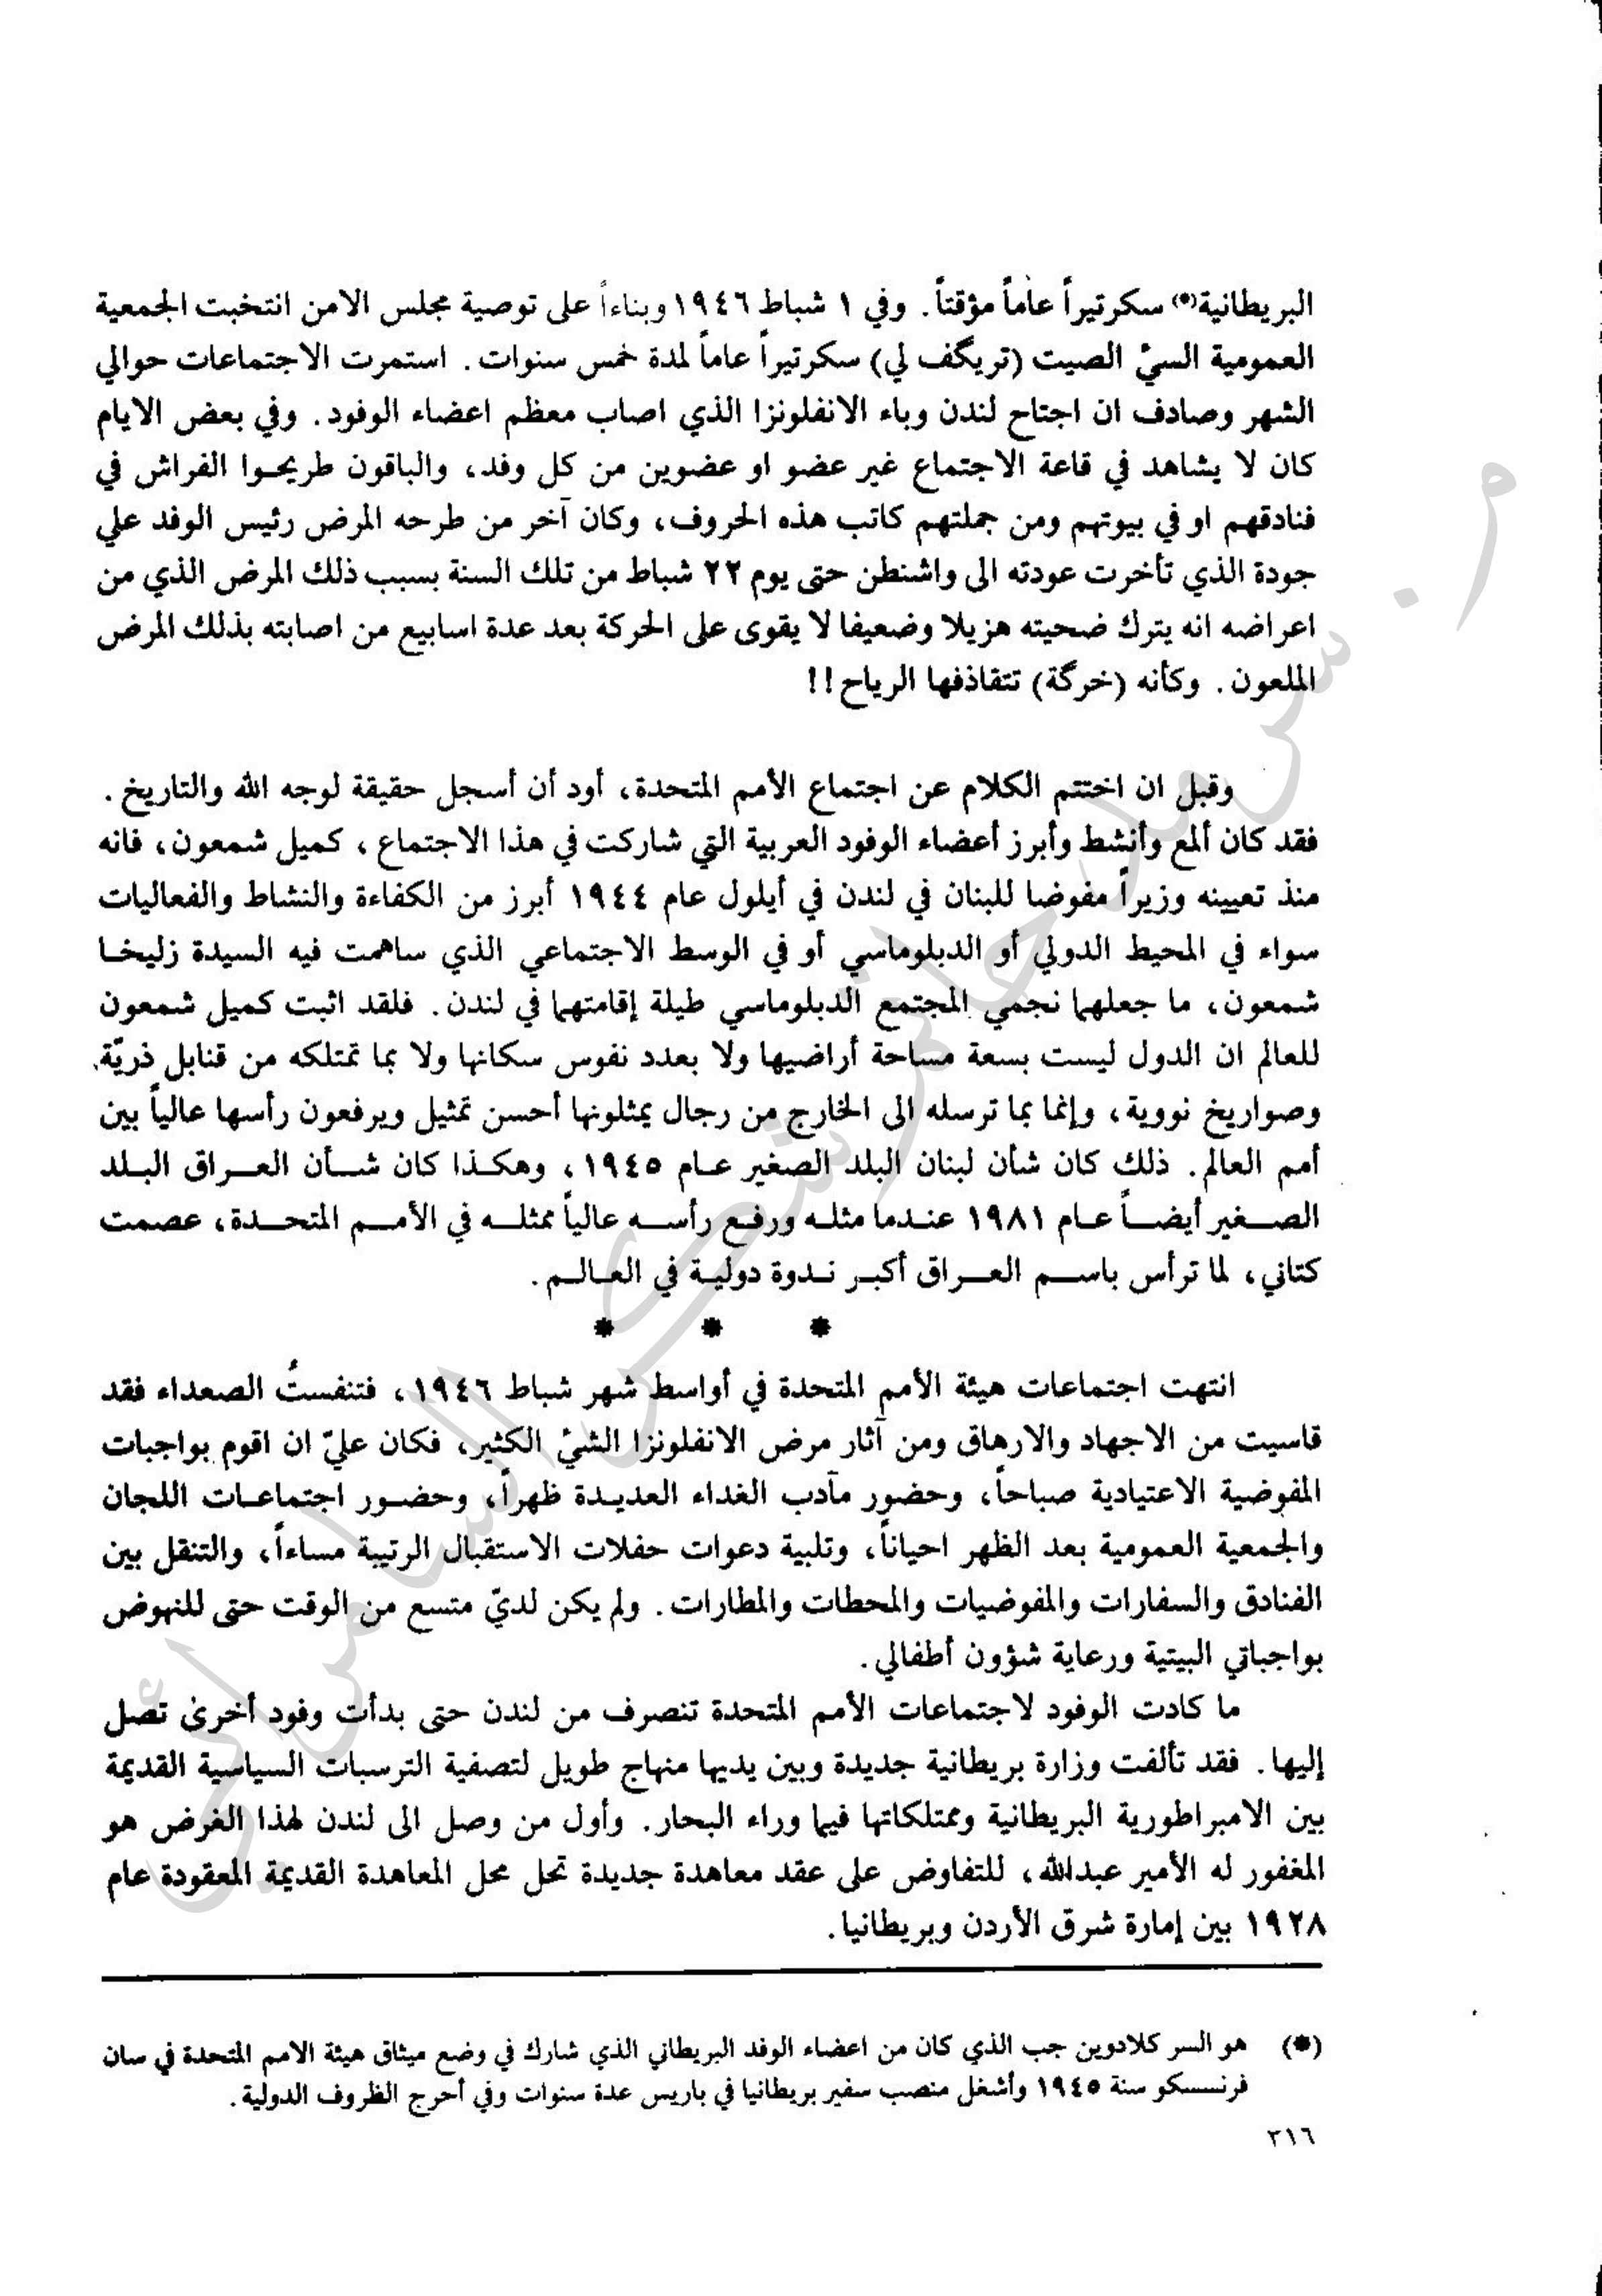 البريطانية(*) سكرتيراً عاماً مؤقتاً. وفي ١ شباط ١٩٤٦ وبناءاً على توصية مجلس الامن انتخبت الجمعية
العمومية السيّ الصيت (تريگف لي) سكرتيراً عاماً لمدة خمس سنوات. استمرت الاجتماعات حوالي
الشهر وصادف ان اجتاح لندن وباء الانفلونزا الذي اصاب معظم اعضاء الوفود. وفي بعض الايام
كان لا يشاهد في قاعة الاجتماع غير عضو او عضوين من كل وفد، والباقون طريحوا الفراش في
فنادقهم او في بيوتهم ومن جملتهم كاتب هذه الحروف، وكان آخر من طرحه المرض رئيس الوفد علي
جودة الذي تأخرت عودته الى واشنطن حتى يوم ٢٢ شباط من تلك السنة بسبب ذلك المرض الذي من
اعراضه انه يترك ضحيته هزيلا وضعيفا لا يقوى على الحركة بعد عدة اسابيع من اصابته بذلك المرض
الملعون. وكأنه (خرگة) تتقاذفها الرياح!!
وقبل ان اختتم الكلام عن اجتماع الأمم المتحدة، أود أن أسجل حقيقة لوجه الله والتاريخ.
فقد كان ألمع وأنشط وأبرز أعضاء الوفود العربية التي شاركت في هذا الاجتماع، كميل شمعون، فانه
منذ تعيينه وزيراً مفوضا للبنان في لندن في أيلول عام ١٩٤٤ أبرز من الكفاءة والنشاط والفعاليات
سواء في المحيط الدولي أو الدبلوماسي أو في الوسط الاجتماعي الذي ساهمت فيه السيدة زليخا
شمعون، ما جعلهما نجمي المجتمع الدبلوماسي طيلة إقامتهما في لندن. فلقد اثبت كميل شمعون
للعالم ان الدول ليست بسعة مساحة أراضيها ولا بعدد نفوس سكانها ولا بما تمتلكه من قنابل ذريّة،
وصواريخ نووية، وإنما بما ترسله الى الخارج من رجال يمثلونها أحسن تمثيل ويرفعون رأسها عالياً بين
أمم العالم. ذلك كان شأن لبنان البلد الصغير عام ١٩٤٥، وهكذا كان شأن العراق البلد
الصغير أيضاً عام ١٩٨١ عندما مثله ورفع رأسه عالياً ممثله في الأمم المتحدة، عصمت
كتاني، لما ترأس باسم العراق أكبر ندوة دولية في العالم.
* * *
انتهت اجتماعات هيئة الأمم المتحدة في أواسط شهر شباط ١٩٤٦، فتنفستُ الصعداء فقد
قاسيت من الاجهاد والارهاق ومن آثار مرض الانفلونزا الشيّ الكثير، فكان عليّ ان اقوم بواجبات
المفوضية الاعتيادية صباحاً، وحضور مآدب الغداء العديدة ظهراً، وحضور اجتماعات اللجان
والجمعية العمومية بعد الظهر احياناً، وتلبية دعوات حفلات الاستقبال الرتيبة مساءاً، والتنقل بين
الفنادق والسفارات والمفوضيات والمحطات والمطارات. ولم يكن لديّ متسع من الوقت حتى للنهوض
بواجباتي البيتية ورعاية شؤون أطفالي.
ما كادت الوفود لاجتماعات الأمم المتحدة تنصرف من لندن حتى بدأت وفود أخرىٰ تصل
إليها. فقد تألفت وزارة بريطانية جديدة وبين يديها منهاج طويل لتصفية الترسبات السياسية القديمة
بين الامبراطورية البريطانية وممتلكاتها فيما وراء البحار. وأول من وصل الى لندن لهذا الغرض هو
المغفور له الأمير عبدالله، للتفاوض على عقد معاهدة جديدة تحل محل المعاهدة القديمة المعقودة عام
١٩٢٨ بين إمارة شرق الأردن وبريطانيا.
(*) هو السر كلادوين جب الذي كان من اعضاء الوفد البريطاني الذي شارك في وضع ميثاق هيئة الامم المتحدة في سان
فرنسسكو سنة ١٩٤٥ وأشغل منصب سفير بريطانيا في باريس عدة سنوات وفي أحرج الظروف الدولية.
٣١٦